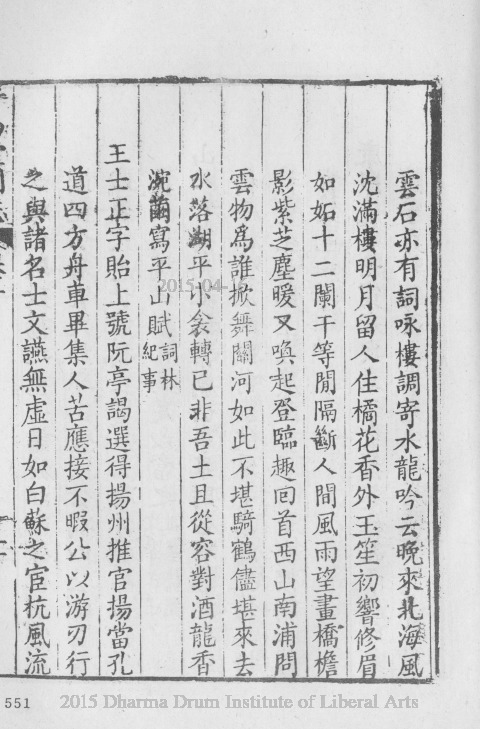 雲石亦有詞咏樓調寄水龍吟云晚來北海風
沈滿樓明月留人住橘花香外玉笙初響修眉
如妬十二闌干等閒隔斷人間風雨望畫橋檐
影紫芝塵暖又喚起登臨趣回首西山南浦問
雲物爲誰掀舞關河如此不堪騎鶴儘堪來去
水落湖平小衾轉已非吾土且從容對酒龍香
涴繭寫平山賦詞林紀事
王士正字貽上號阮亭謁選得揚州推官揚當孔
道四方舟車畢集人苦應接不暇公以游刃行
之與諸名士文讌無虛日如白蘇之宦杭風流
2015-04-
551
2015 Dharma Drum Institute of Liberal Arts